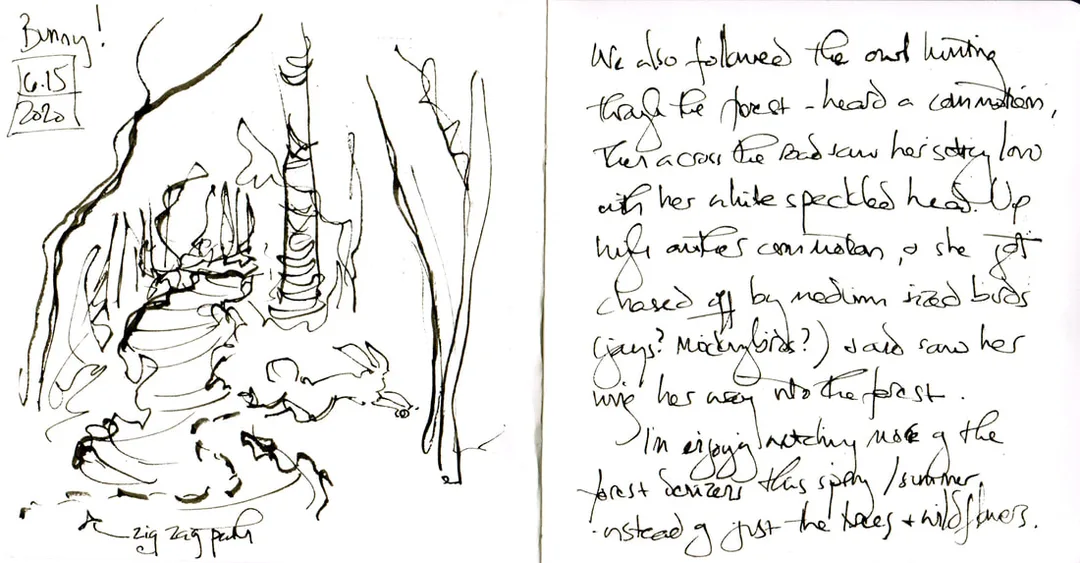 Bunny!
6.15
2020
zig zag path
We also followed the owl hunting
through the forest - heard a commotion,
then across the road saw her sitting low
with her white speckled head. Up
another commotion, & she got
chased off by medium sized birds
(jays? Mockingbirds?) and saw her
wing her way into the forest.
I'm enjoying watching more of the
forest denizens this spring/summer,
instead of just the trees + wildflowers.